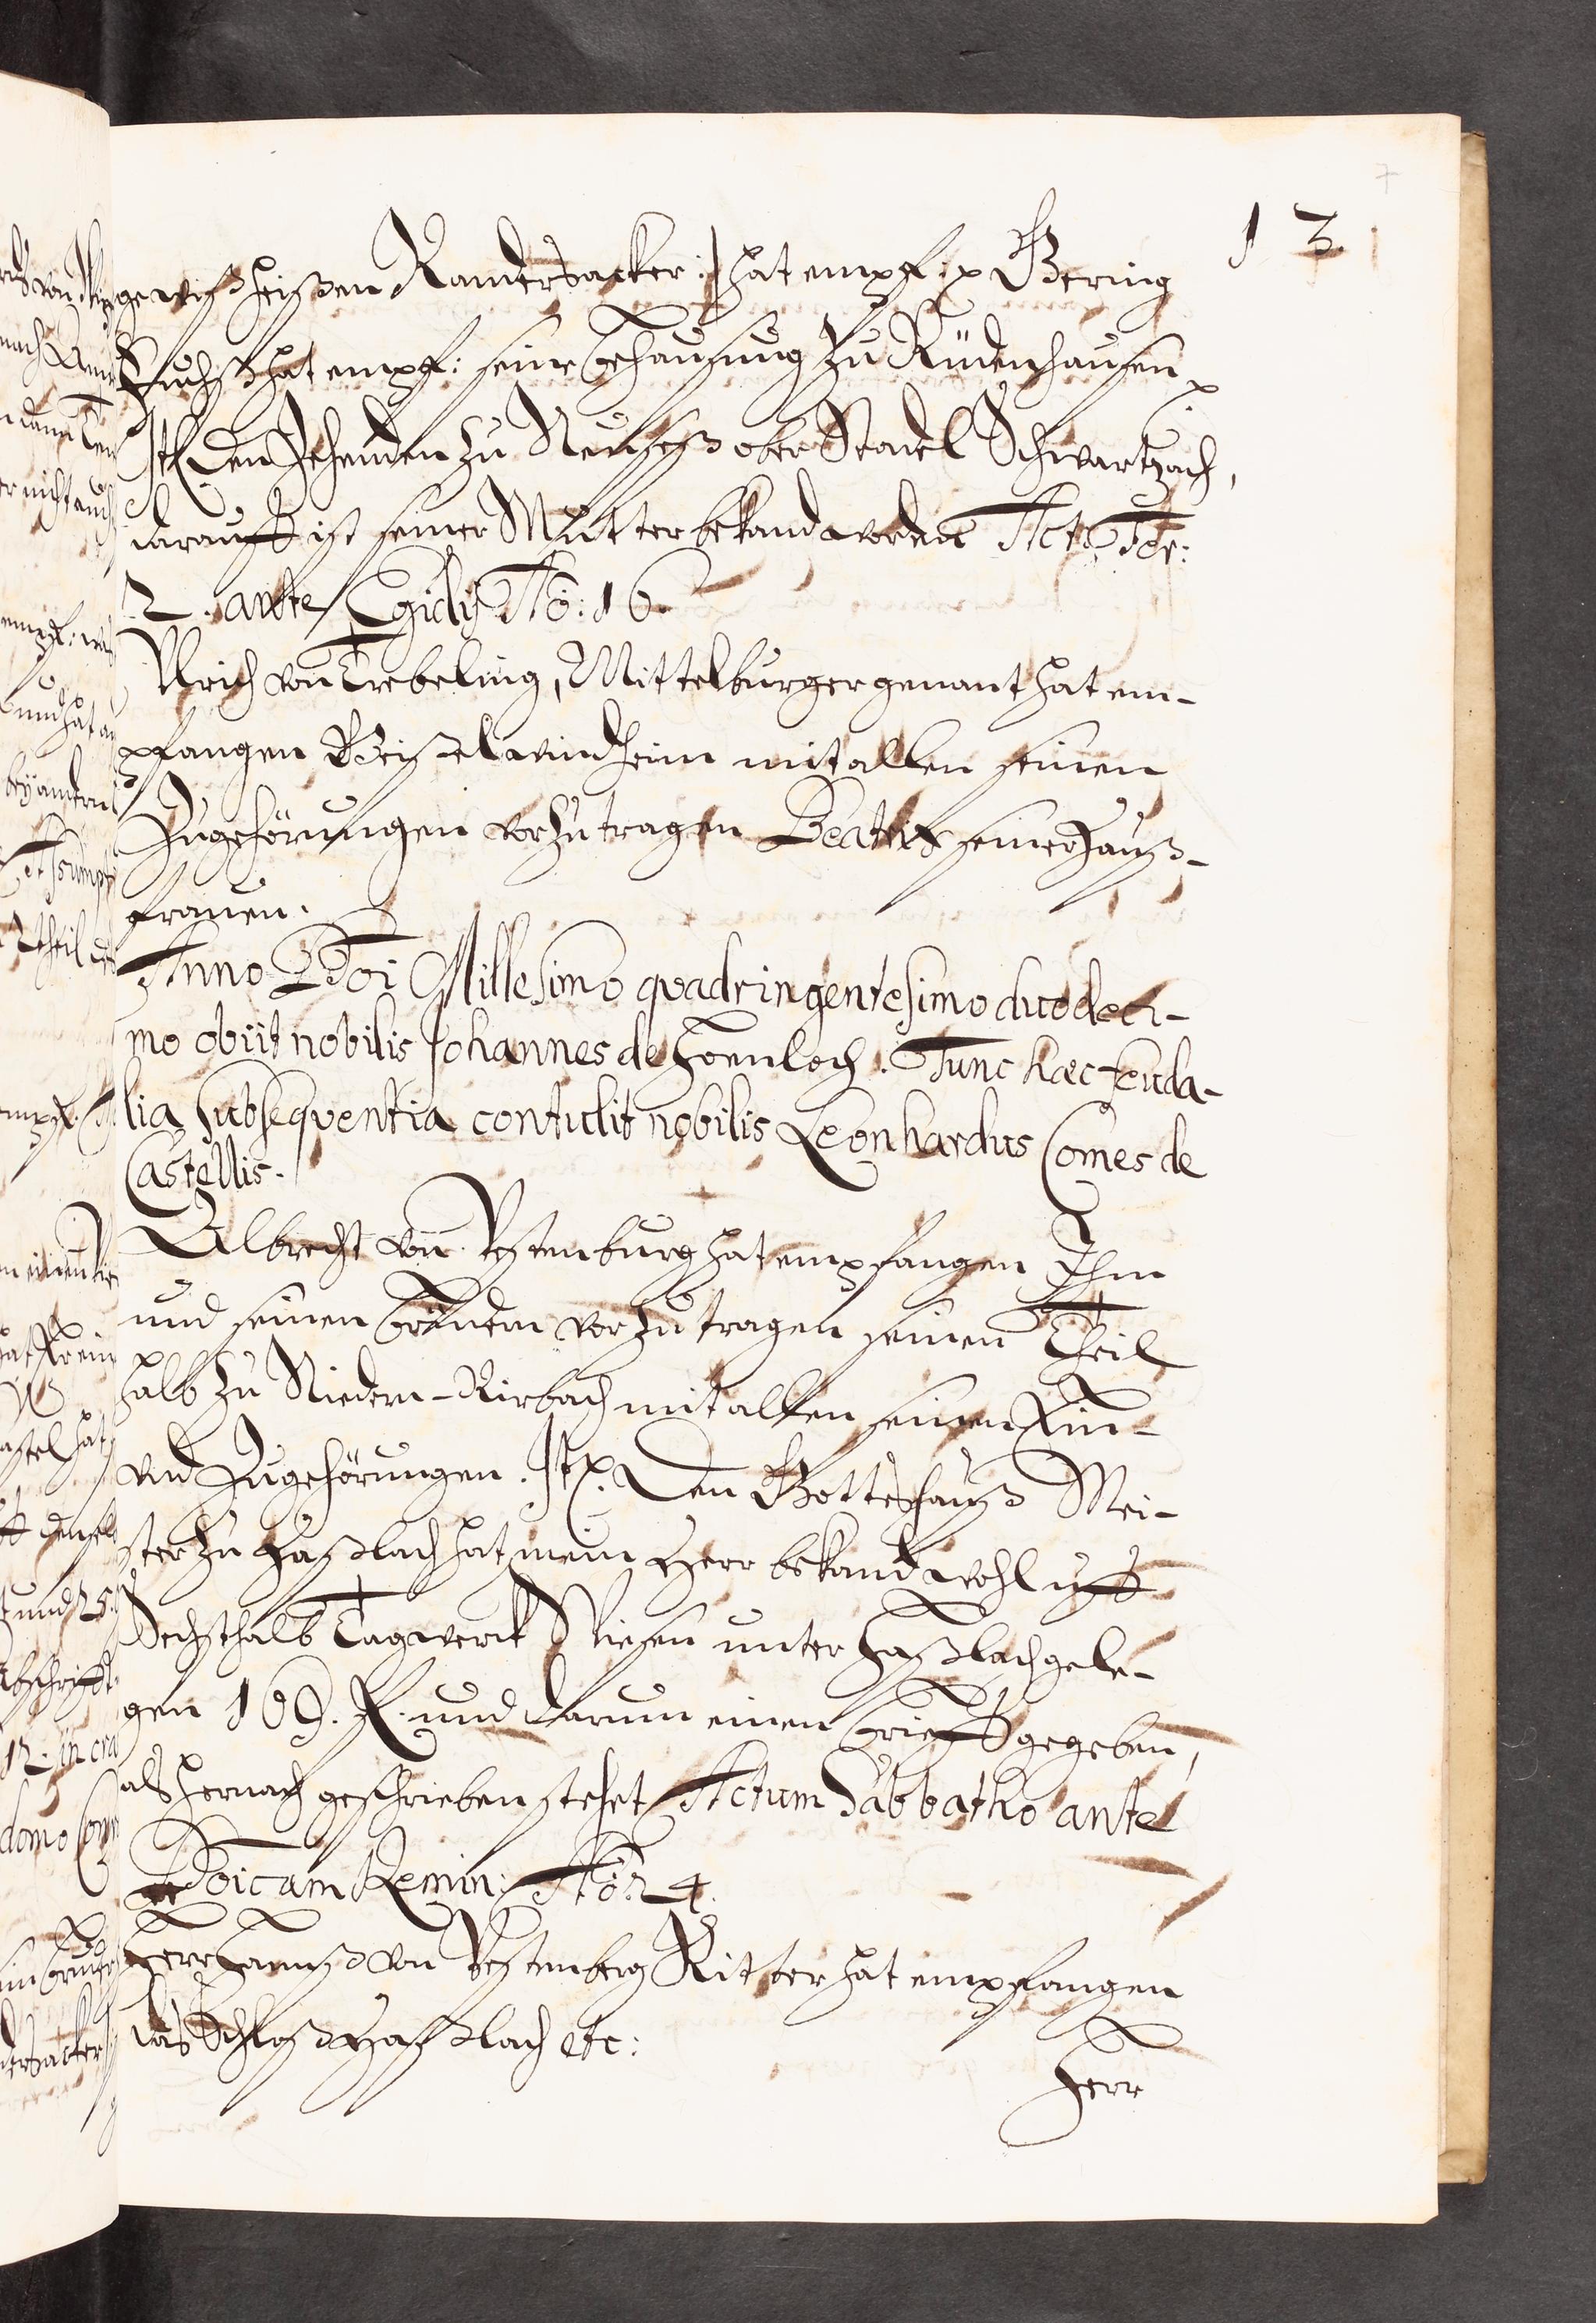 13
7
gewiß heißen Randersacker :/ hat empf: p Gering
Fuchß hat empf: seine Behausung zu Rüdenhausen p
It. Den Zehenden zu Neuseß ober Stadel Schwartzach,
darauff ist seiner Mutter bekand worden Act. Fer:
2. ante Egidij Ao: 16
Ulrich von Trebeling, Mittelburger genant hat em-
pfangen Geißelwindheim mit allen seinen
Zugehörungen vorzutragen Beatrix seiner Hauß-
frauen.
Anno Doi Millesimo quadringentesimo duodeci-
mo obiit nobilis Johannes de Hoenloch. Tunc haec feuda-
lia subsequentia contulit nobilis Leonhardus Comes de
Castellis.
Albrecht von Vestenburg hat empfangen Ihm
und seinen Brüdern vorzutragen seinen Theil
halb zu Niedern-Rirbach mit allen seinen Ein-
und Zugehörungen. It. Den Gotteßhauß Mei-
ster zu Haßlach hat mein Herr bekand wohl uff
Sechsthalb Tagwerk Wiesen unter Haßlach gele-
gen 169. fl. und darum einen Brieff gegeben,
als hernach geschrieben stehet Actum Sabbatho ante
Doicam Remin: Ao: 24.
Herr Hannß von Vestenberg Ritter hat empfangen
das Schloß Haßlach etc:
Herr